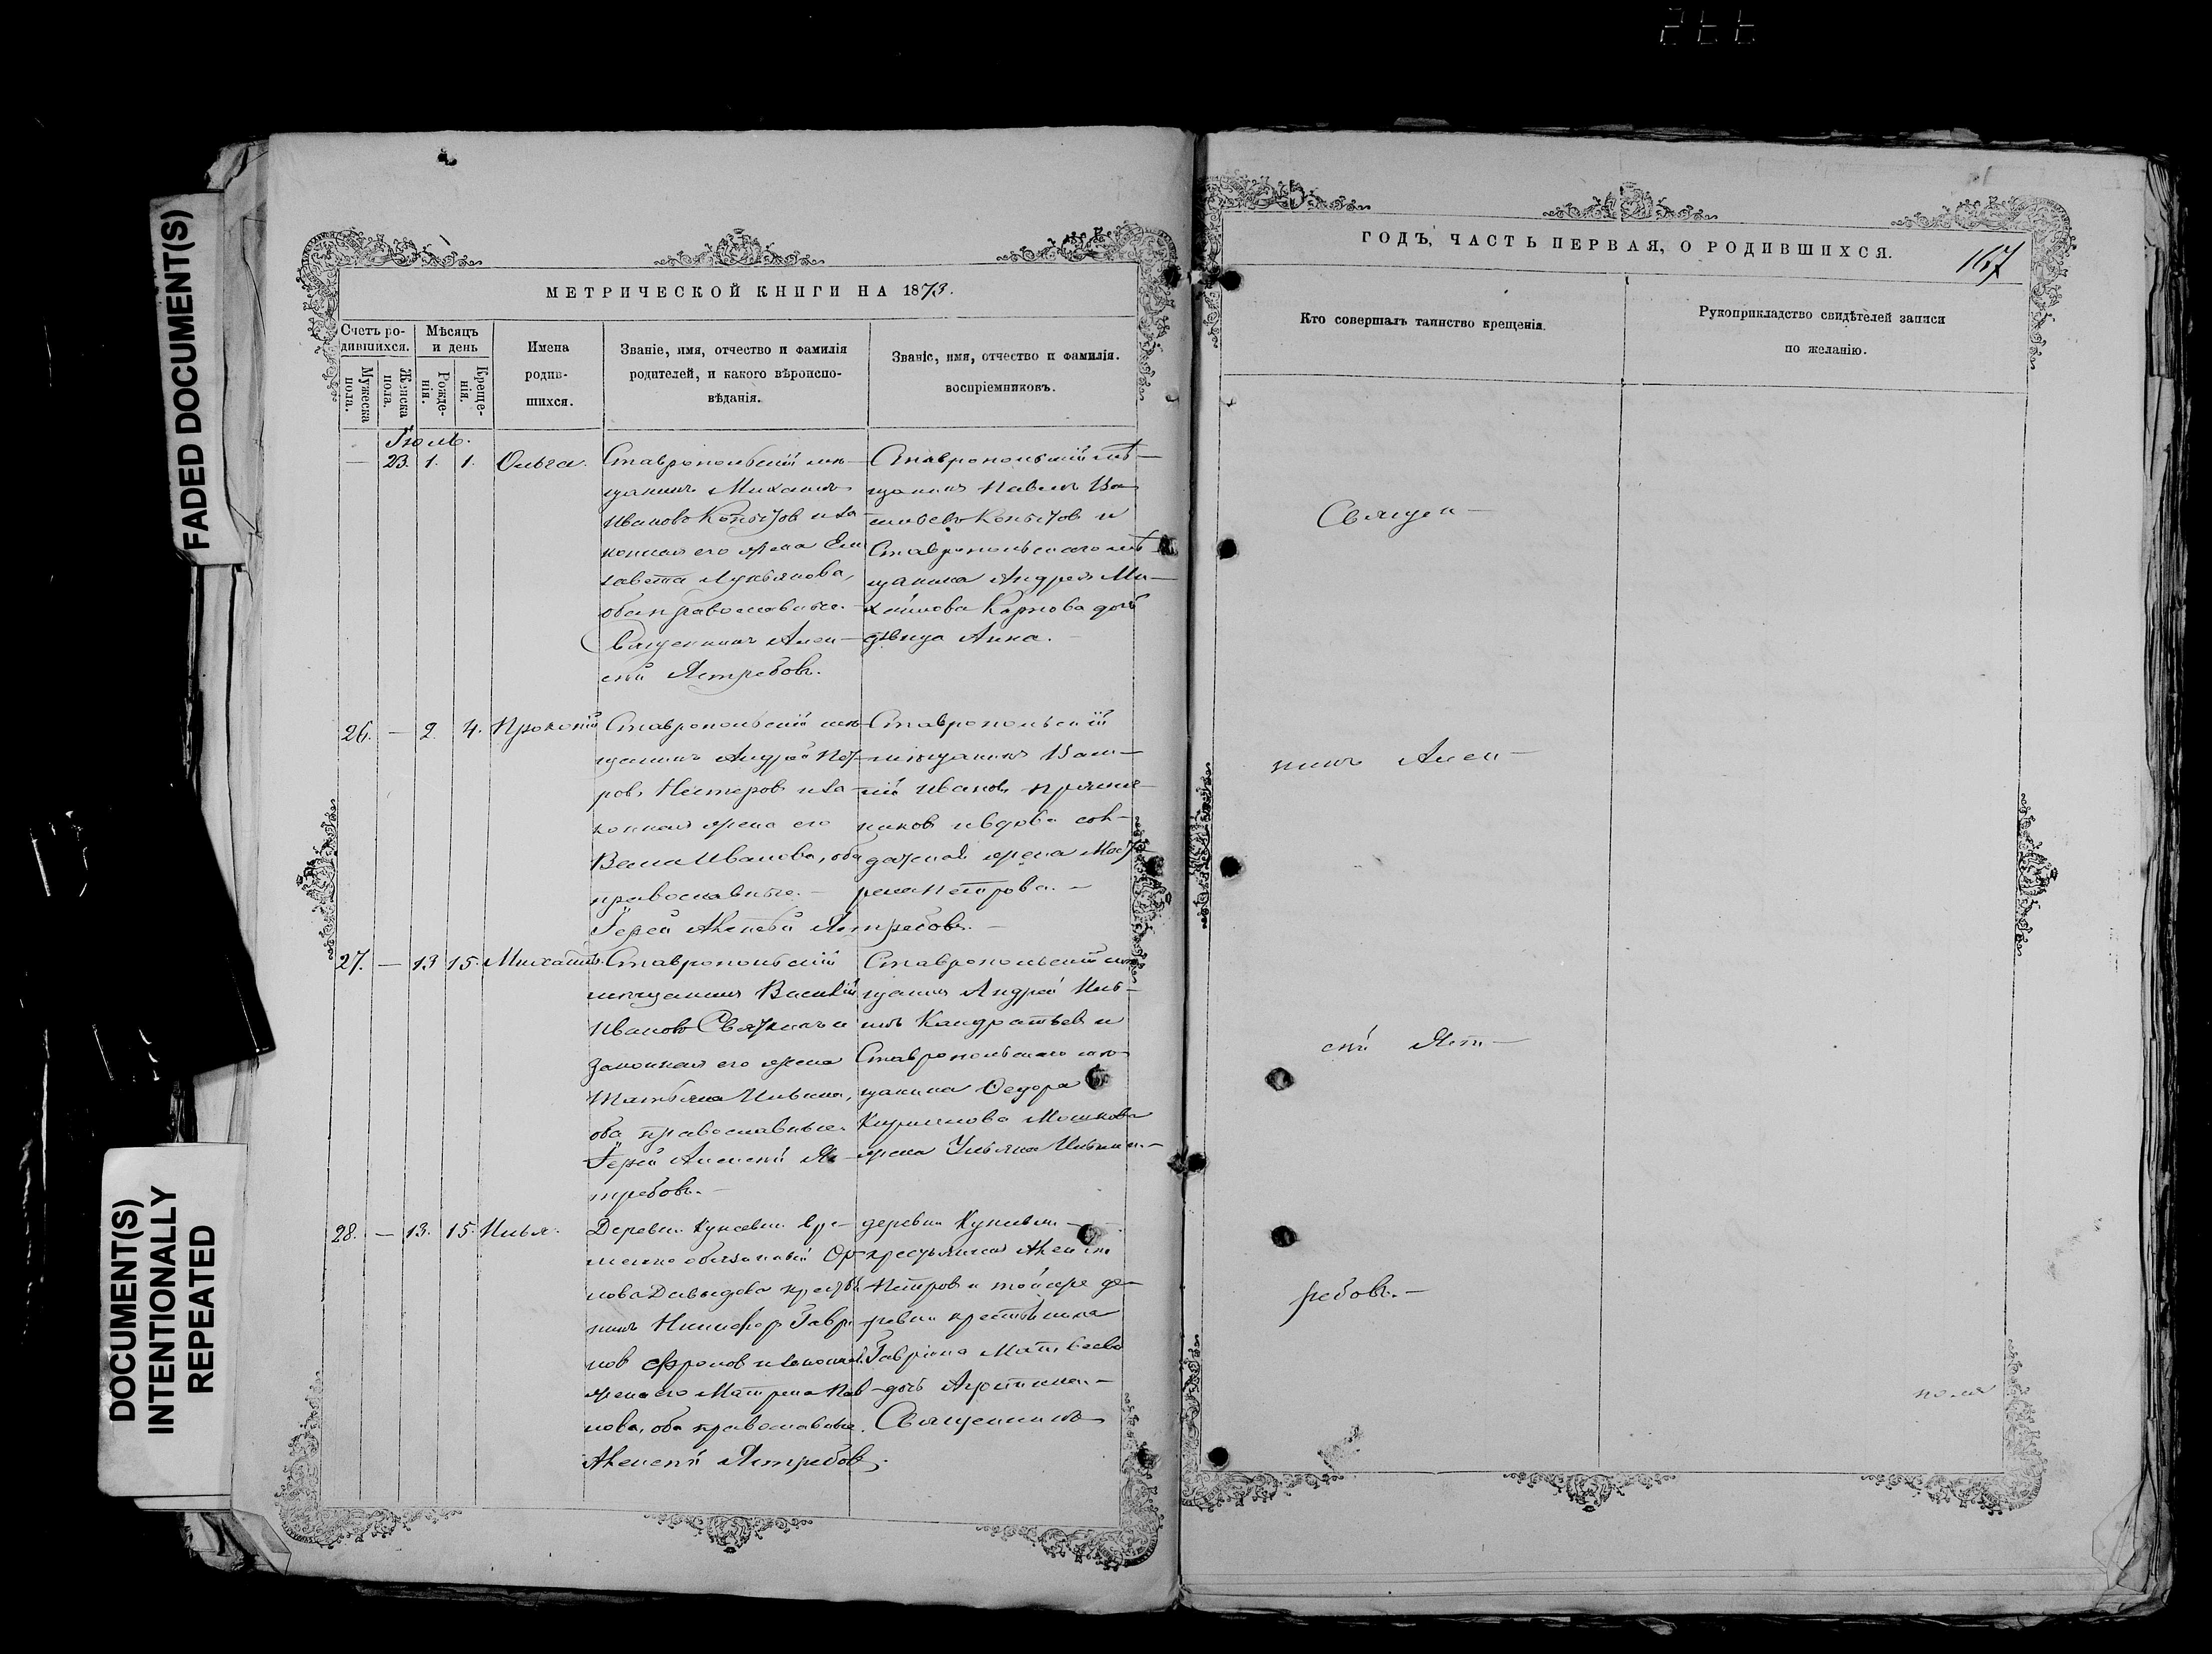 FADED DOCUMENT(S)
DOCUMENT(S)
INTENTIONALLY
REPEATED
МЕТРИЧЕСКОЙ КНИГИ НА 1873.
Счетъ ро-
дившихся.
Мужеска
пола.
Женска
пола.
Мѣсяцъ
и день
Рожде-
нія.
Креще-
нія.
Имена
родив-
шихся.
Званіе, имя, отчество и фамилія
родителей, и какого вѣроиспо-
вѣданія.
Званіе, имя, отчество и фамилія.
воспріемниковъ.
Іюль.
— 23. 1. 1. Ольга.
Ставропольскій мѣ-
щанинъ Михаилъ
Ивановъ Копытов и за-
конная его жена Ели
завета Лукьянова,
оба православные.
Священникъ Алек-
сѣй Ястребовъ.
Ставропольскій мѣ-
щанинъ Павелъ Ва
сильевъ Копытов и
Ставропольскаго мѣ
щанина Андрея Ми-
хайлова Карпова дочь
дѣвица Анна.
26. — 2. 4. Прокопій
Ставропольскій мѣ-
щанинъ Андрей Пет-
ровъ Нестеровъ и за-
конная жена его
Васса Иванова, оба
православные.
Іерей Алексѣй Ястребовъ.
Ставропольскій
мѣщанинъ Васи-
лій Ивановъ Прянич-
никовъ и вдова сол-
датская жена Мат-
рена Петрова.
27. — 13 15. Михаилъ.
Ставропольскій
мѣщанинъ Василій
Ивановъ и
законная его жена
Татьяна Ильина,
оба православные.
Іерей Алексѣй Яс-
требовъ.
Ставропольскій мѣ
щанинъ Андрей Иль-
инъ Кандратьев и
Ставропольскаго мѣ-
щанина Ѳедора
Кирилова Мошкова
жена Ульяна Ильина.
28. — 13. 15. Илья.
Деревни вре-
менно обязанный Ор-
лова Давыдова крестья
нинъ Никифоръ Гаври
лов Фролов и законная
жена его Матрена Пав
лова, оба православные.
Алексѣй Ястребовъ.
деревни
крестьянинъ Алексѣй
Петров и той же де-
ревни крестьянина
Гаврила Матвеева
дочь
Священникъ
ГОДЪ, ЧАСТЬ ПЕРВАЯ, О РОДИВШИХСЯ.
167
Кто совершалъ таинство крещенія.
Рукоприкладство свидѣтелей записи
по желанію.
Священ-
никъ Алек-
сѣй Яст-
ребовъ.